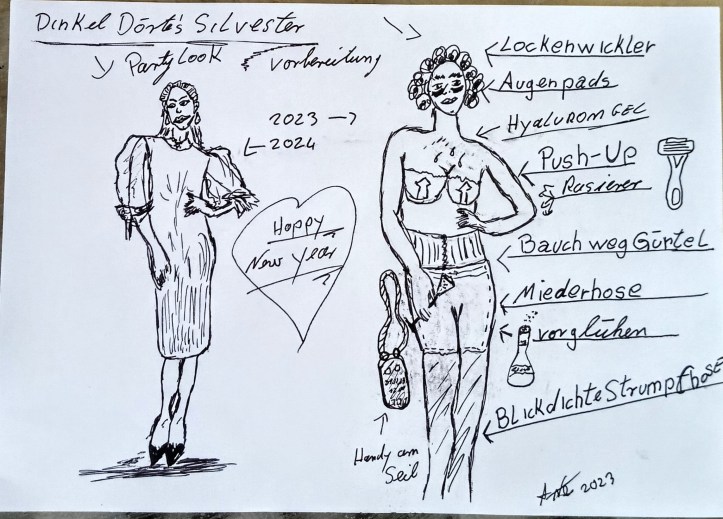 Dinkel Dörte's Silvester
Party Look
Vorbereitung
2023
2024
Happy
New Year
Lockenwickler
Augenpads
Hyaluron GEL
Push-Up
Rasierer
Bauch weg Gürtel
Miederhose
vorglühen
Blickdichte Strumpfhose
Handy am
Seil
2023